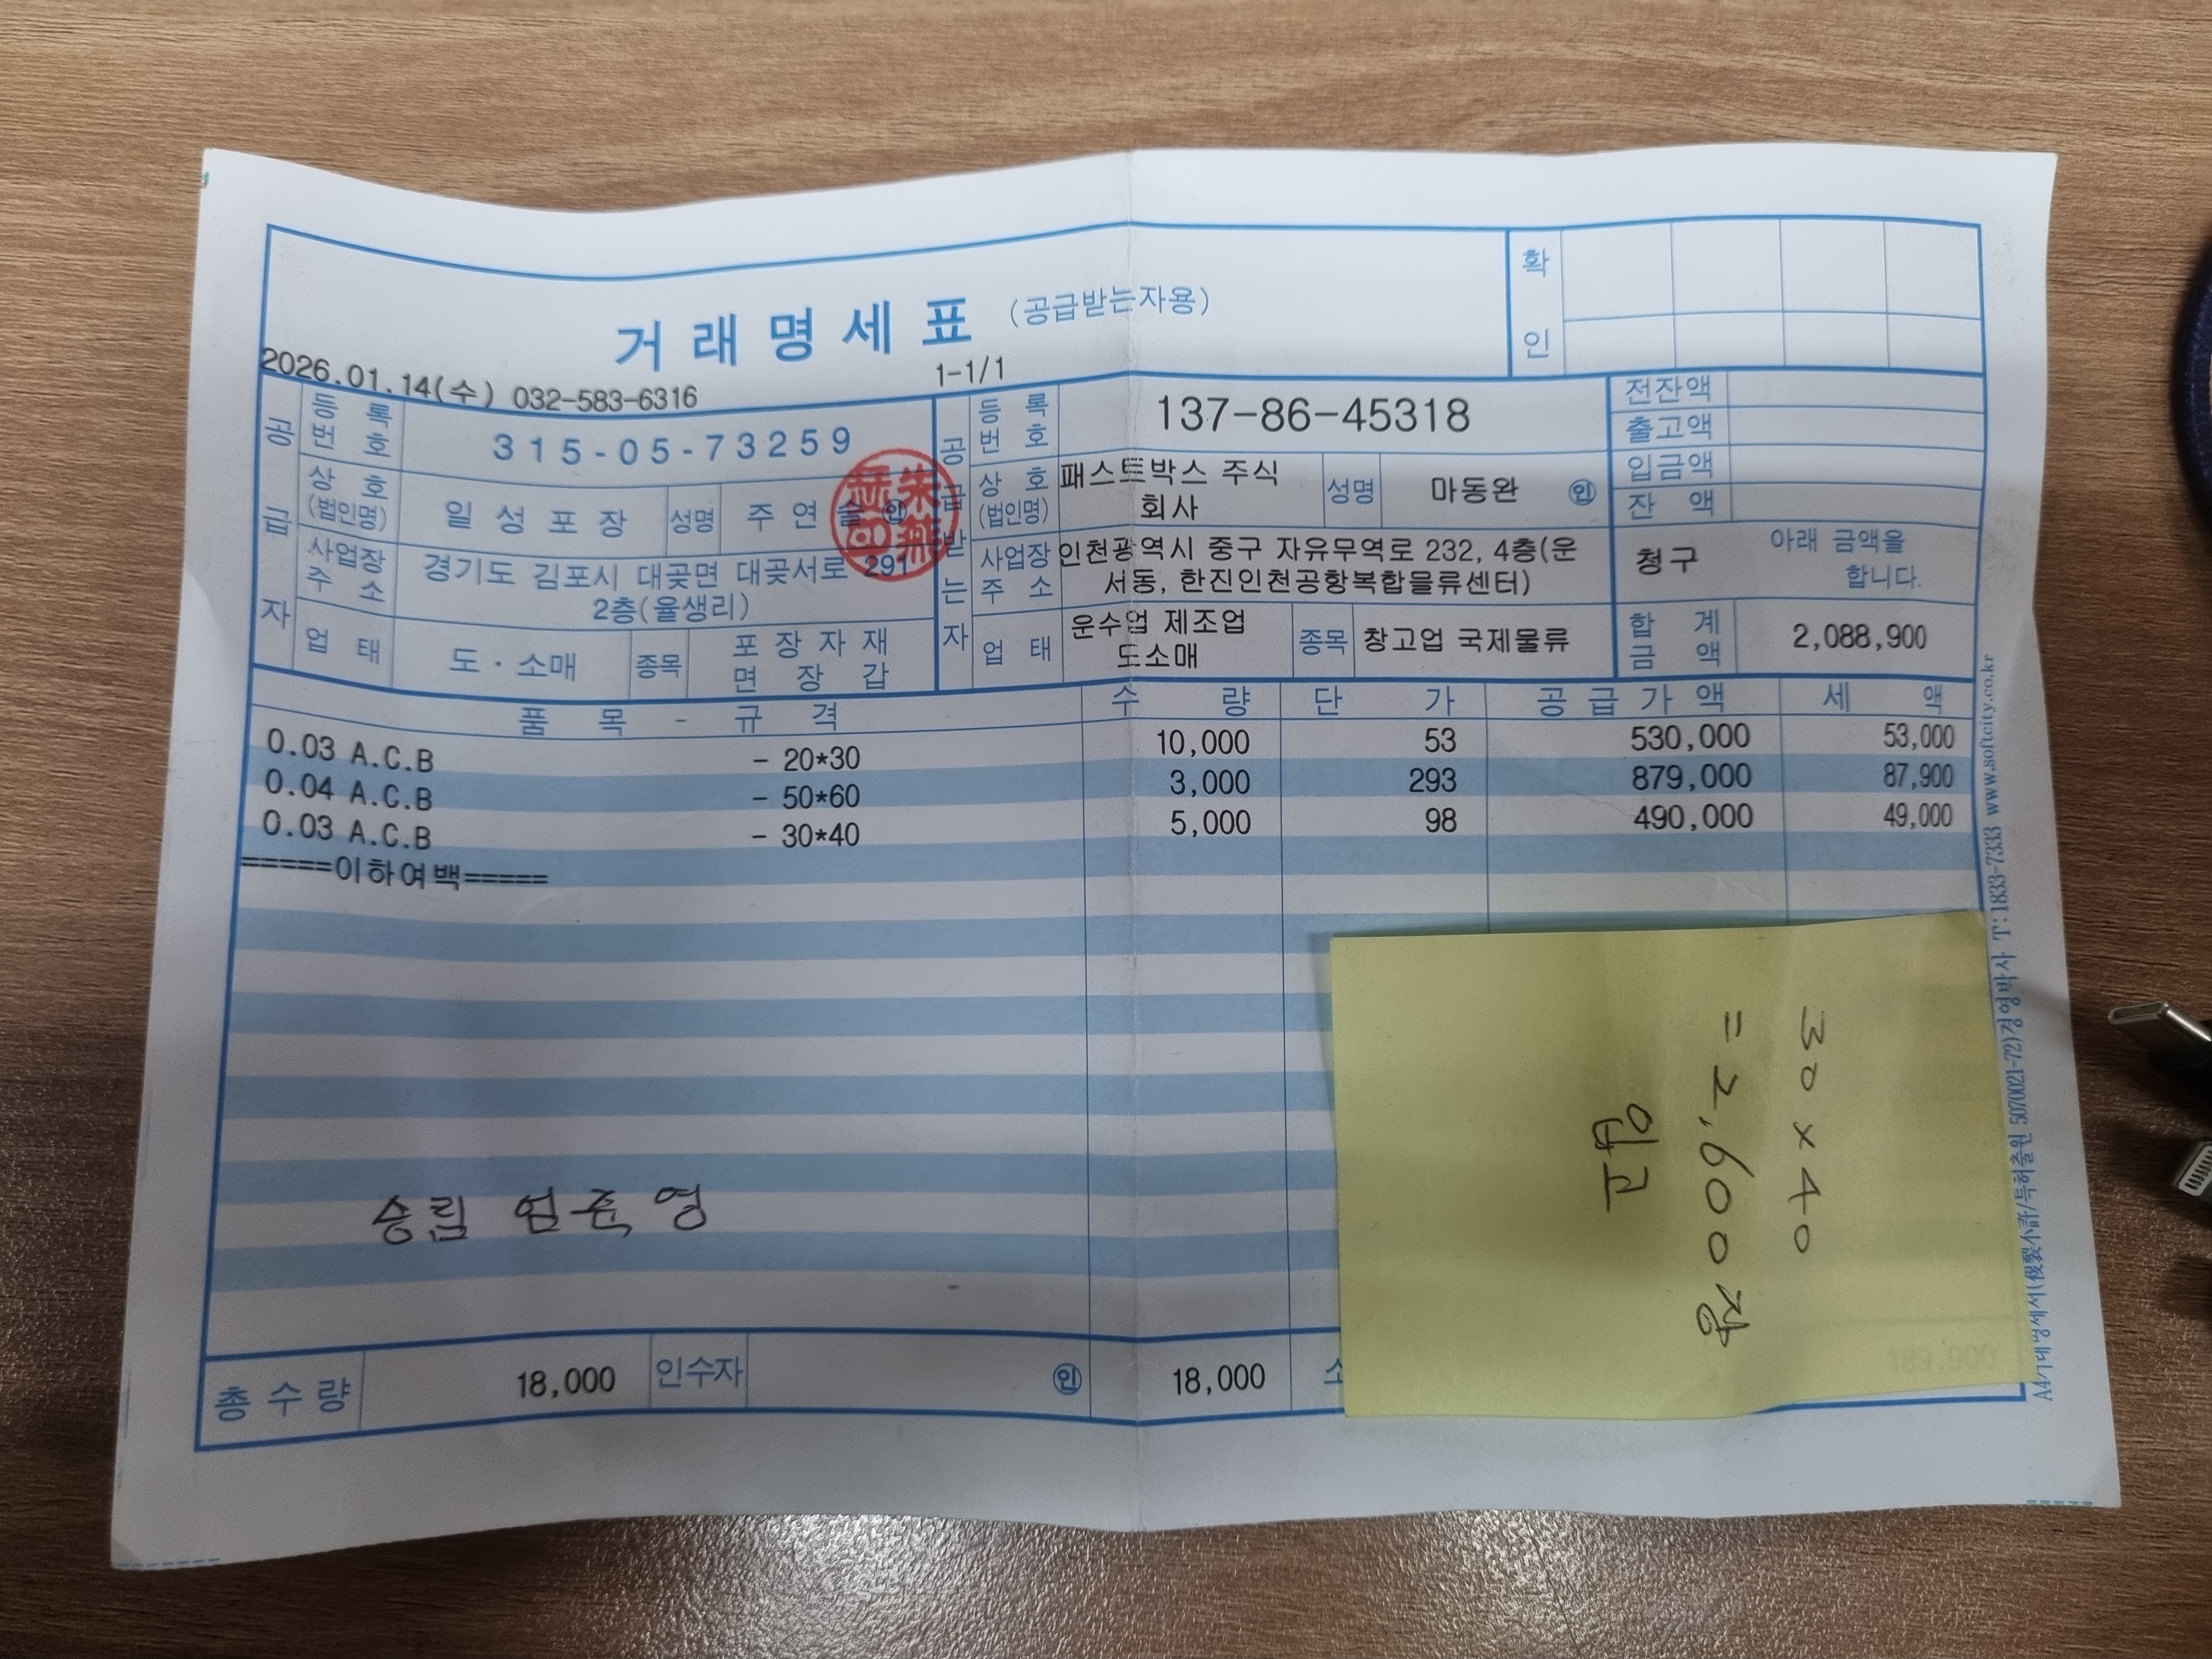 거래명세표 (공급받는자용)
확인
2026.01.14(수) 032-583-6316 1-1/1
공급자
등록번호 315-05-73259
상호(법인명) 일성포장 성명 주연술 인
사업장주소 경기도 김포시 대곶면 대곶서로 291
2층(율생리)
업태 도·소매 종목 포장자재
면장갑
공급받는자
등록번호 137-86-45318
상호(법인명) 패스트박스 주식
회사 성명 마동완 인
사업장주소 인천광역시 중구 자유무역로 232, 4층(운
서동, 한진인천공항복합물류센터)
업태 운수업 제조업
도소매 종목 창고업 국제물류
전잔액
출고액
입금액
잔액
아래 금액을
청구 합니다.
합계금액 2,088,900
품목 - 규격 수량 단가 공급가액 세액
0.03 A.C.B - 20*30 10,000 53 530,000 53,000
0.04 A.C.B - 50*60 3,000 293 879,000 87,900
0.03 A.C.B - 30*40 5,000 98 490,000 49,000
=====이하여백=====
30 x 40
= 2,600장
입고
승립 엄준영
총수량 18,000 인수자 인 18,000 189,900
A4거래명세서(複製不許/특허출원 5070021-72)경영박사 T:1833-7333 www.softcity.co.kr